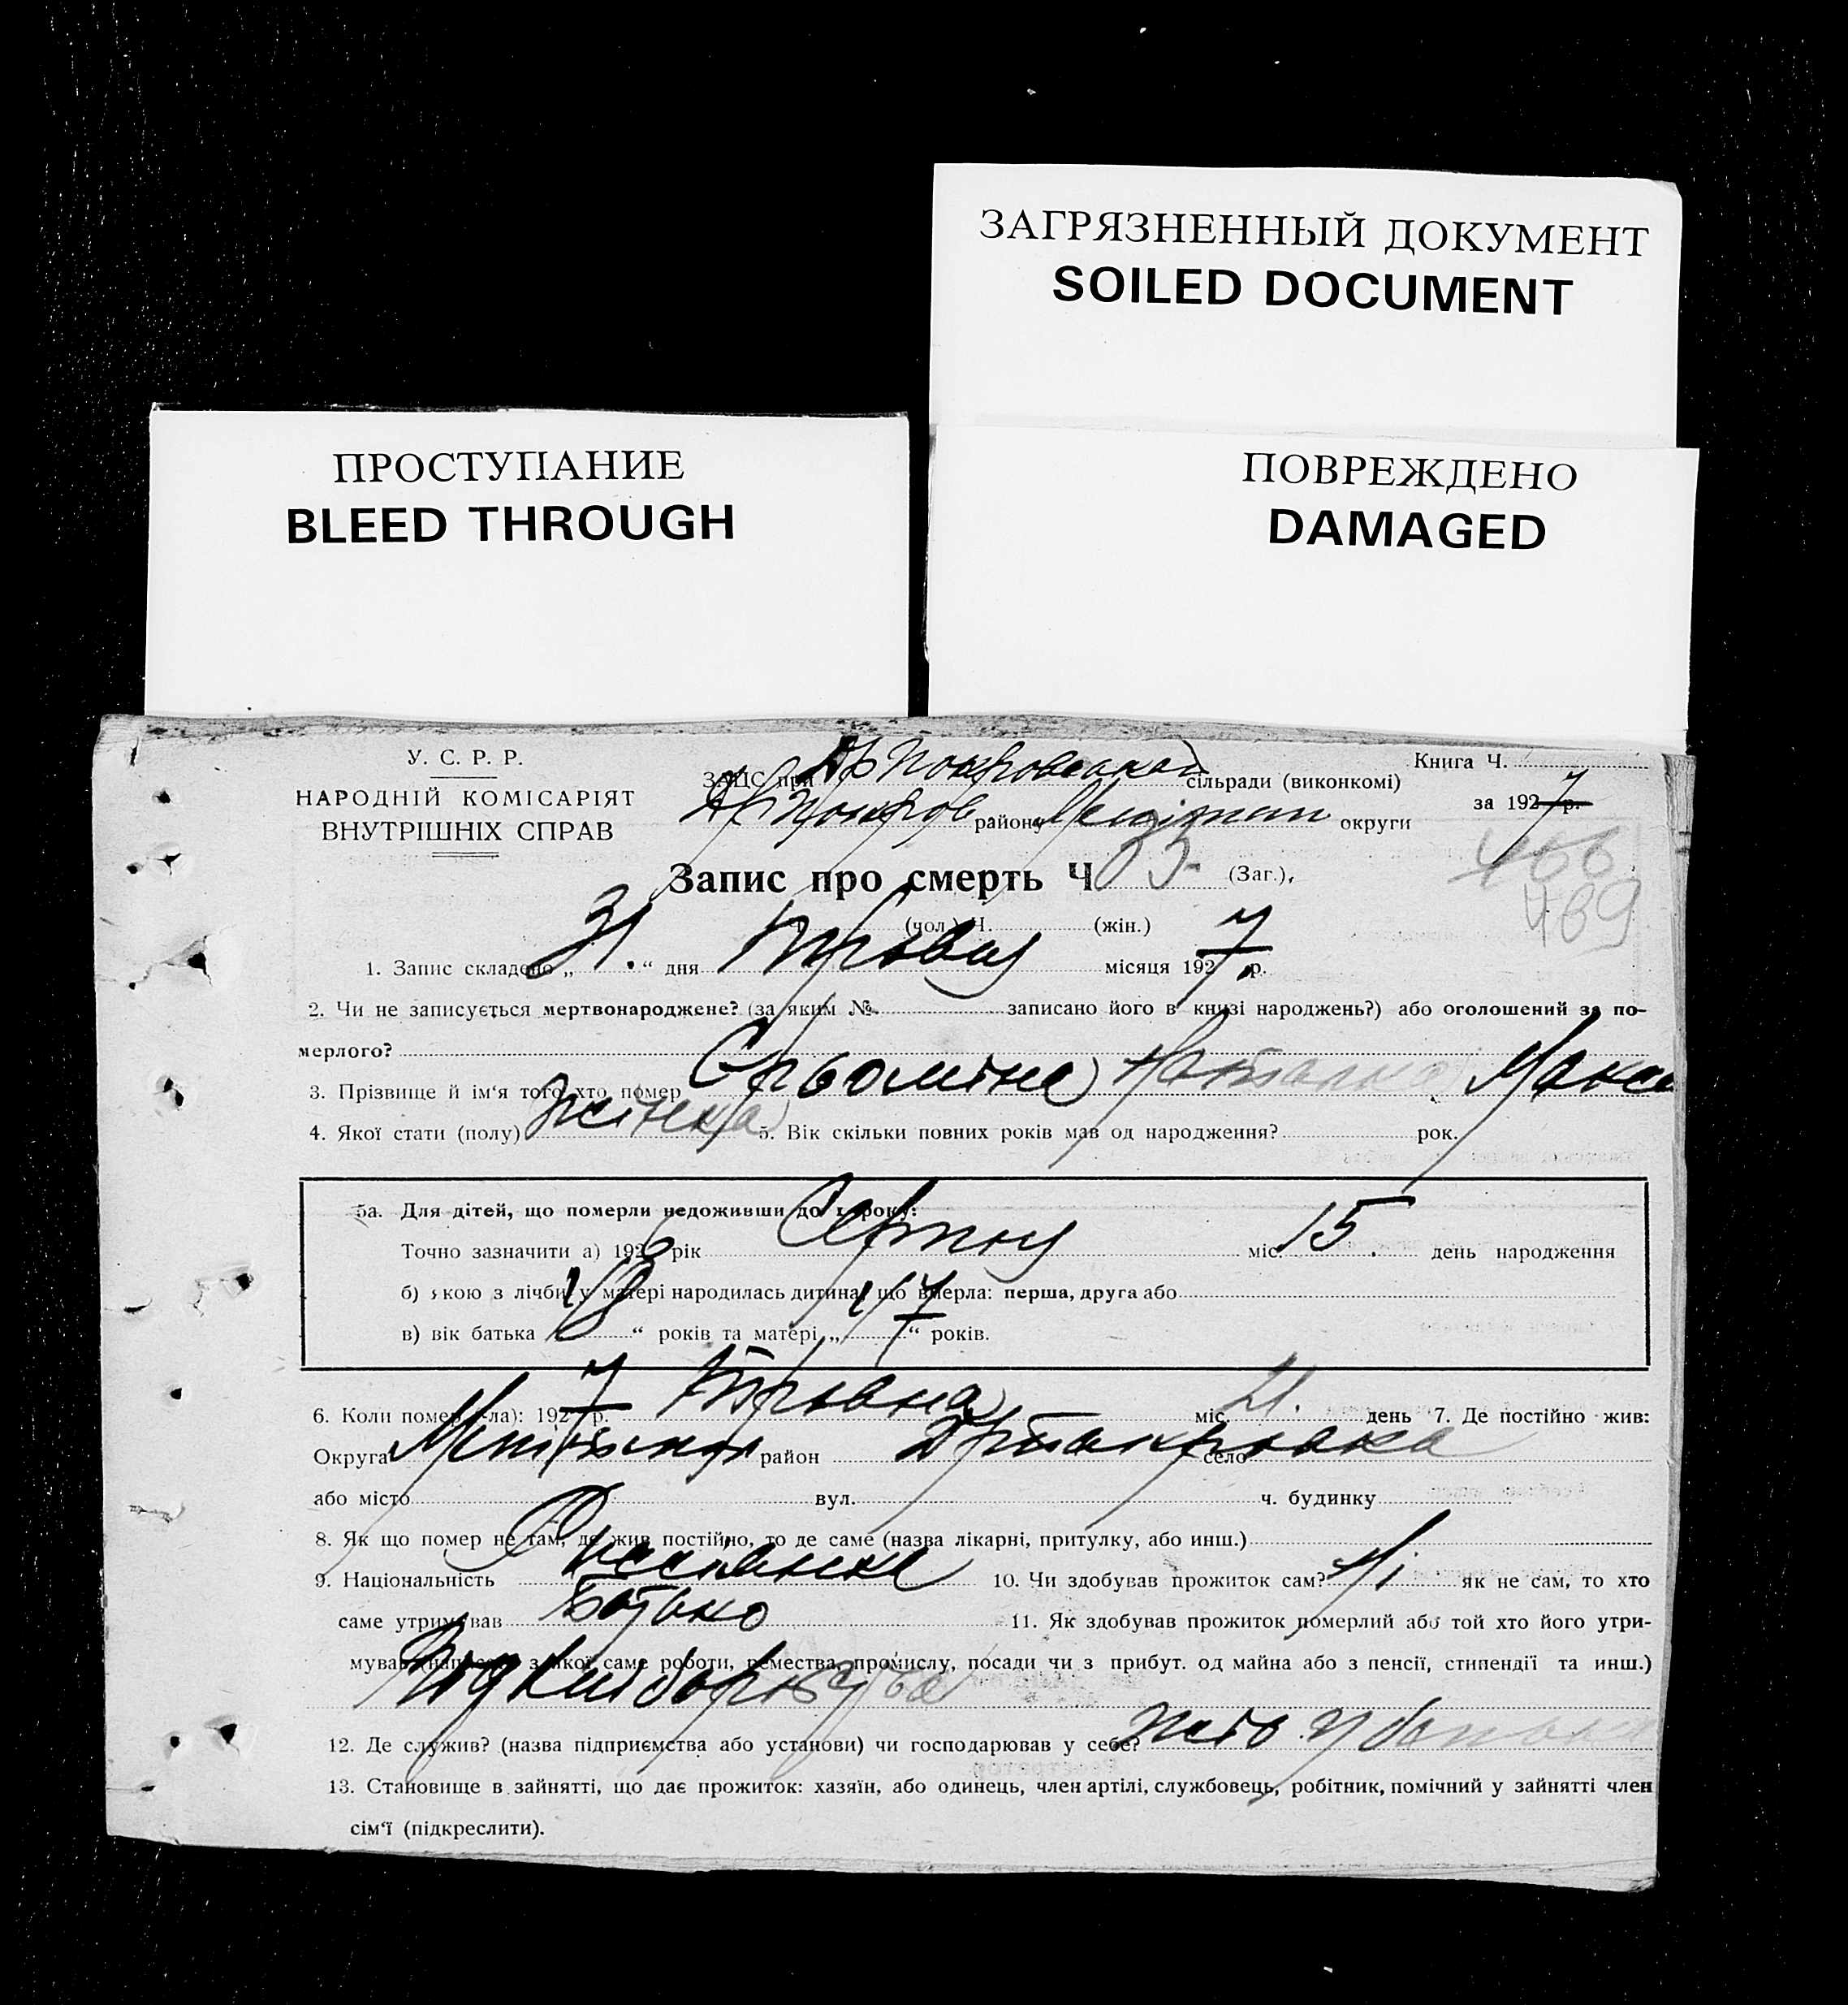 ЗАГРЯЗНЕННЫЙ ДОКУМЕНТ
SOILED DOCUMENT
ПРОСТУПАНИЕ
BLEED THROUGH
ПОВРЕЖДЕНО
DAMAGED
У. С. Р. Р.
НАРОДНІЙ КОМІСАРІЯТ
ВНУТРІШНІХ СПРАВ
ЗАЦС при сільради (виконкомі)
району округи
Книга Ч.
за 1927 р.
Запис про смерть Ч (Заг.),
466
489
(чол.) Ч. (жін.)
1. Запис складено „31.“ дня Травня місяця 1927 р.
2. Чи не записується мертвонароджене? (за яким № записано його в книзі народжень?) або оголошений за по-
мерлого?
3. Прізвище й ім'я того, хто помер
4. Якої стати (полу) Жінка 5. Вік скільки повних років мав од народження? рок.
5а. Для дітей, що померли недоживши до 1 року:
Точно зазначити а) 1926 рік Серпня міс. 15. день народження
б) якою з лічби у матері народилась дитина, що вмерла: перша, друга або
в) вік батька „18“ років та матері „17“ років.
6. Коли помер (-ла): 1927 р. Травня міс. 21. день 7. Де постійно жив:
Округа район село
або місто вул. ч. будинку
8. Як що помер не там, де жив постійно, то де саме (назва лікарні, притулку, або инш.)
9. Національність 10. Чи здобував прожиток сам? Ні як не сам, то хто
саме утримував Батько 11. Як здобував прожиток померлий або той хто його утри-
мував (написати з якої саме роботи, ремества, промислу, посади чи з прибут. од майна або з пенсії, стипендії та инш.)
12. Де служив? (назва підприємства або установи) чи господарював у себе?
13. Становище в зайнятті, що дає прожиток: хазяїн, або одинець, член артілі, службовець, робітник, помічний у зайнятті член
сім'ї (підкреслити).